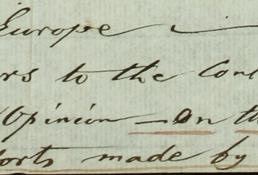 Europe —
rs to the Con
Opinion — on th
orts made by